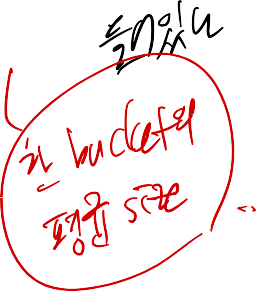 들어있나
한 bucket의
평균 size